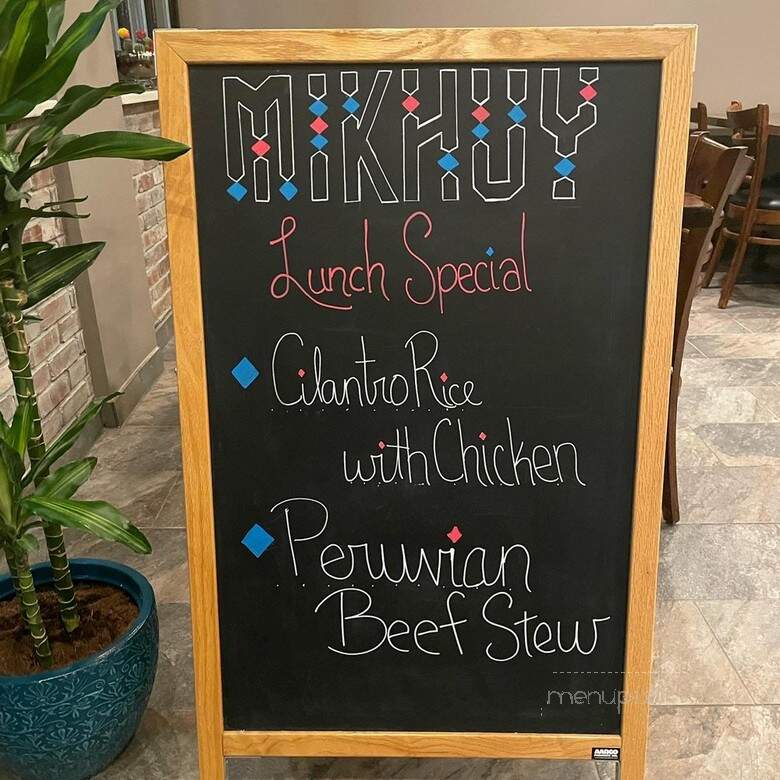 MIKHUY
Lunch Special
Cilantro Rice
with Chicken
Peruvian
Beef Stew
AARCO